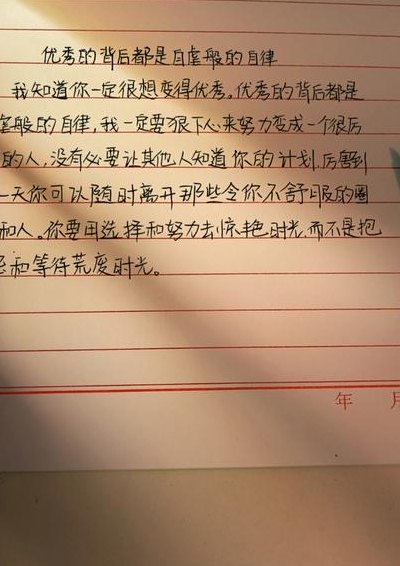 优秀的背后都是自虐般的自律
我知道你一定很想变得优秀。优秀的背后都是
虐般的自律,我一定要狠下心来努力变成一个很厉
的人,没有必要让其他人知道你的计划,厉害到
一天你可以随时离开那些令你不舒服的圈
和人。你要用选择和努力去惊艳时光,而不是抱
和等待荒废时光。
年 月